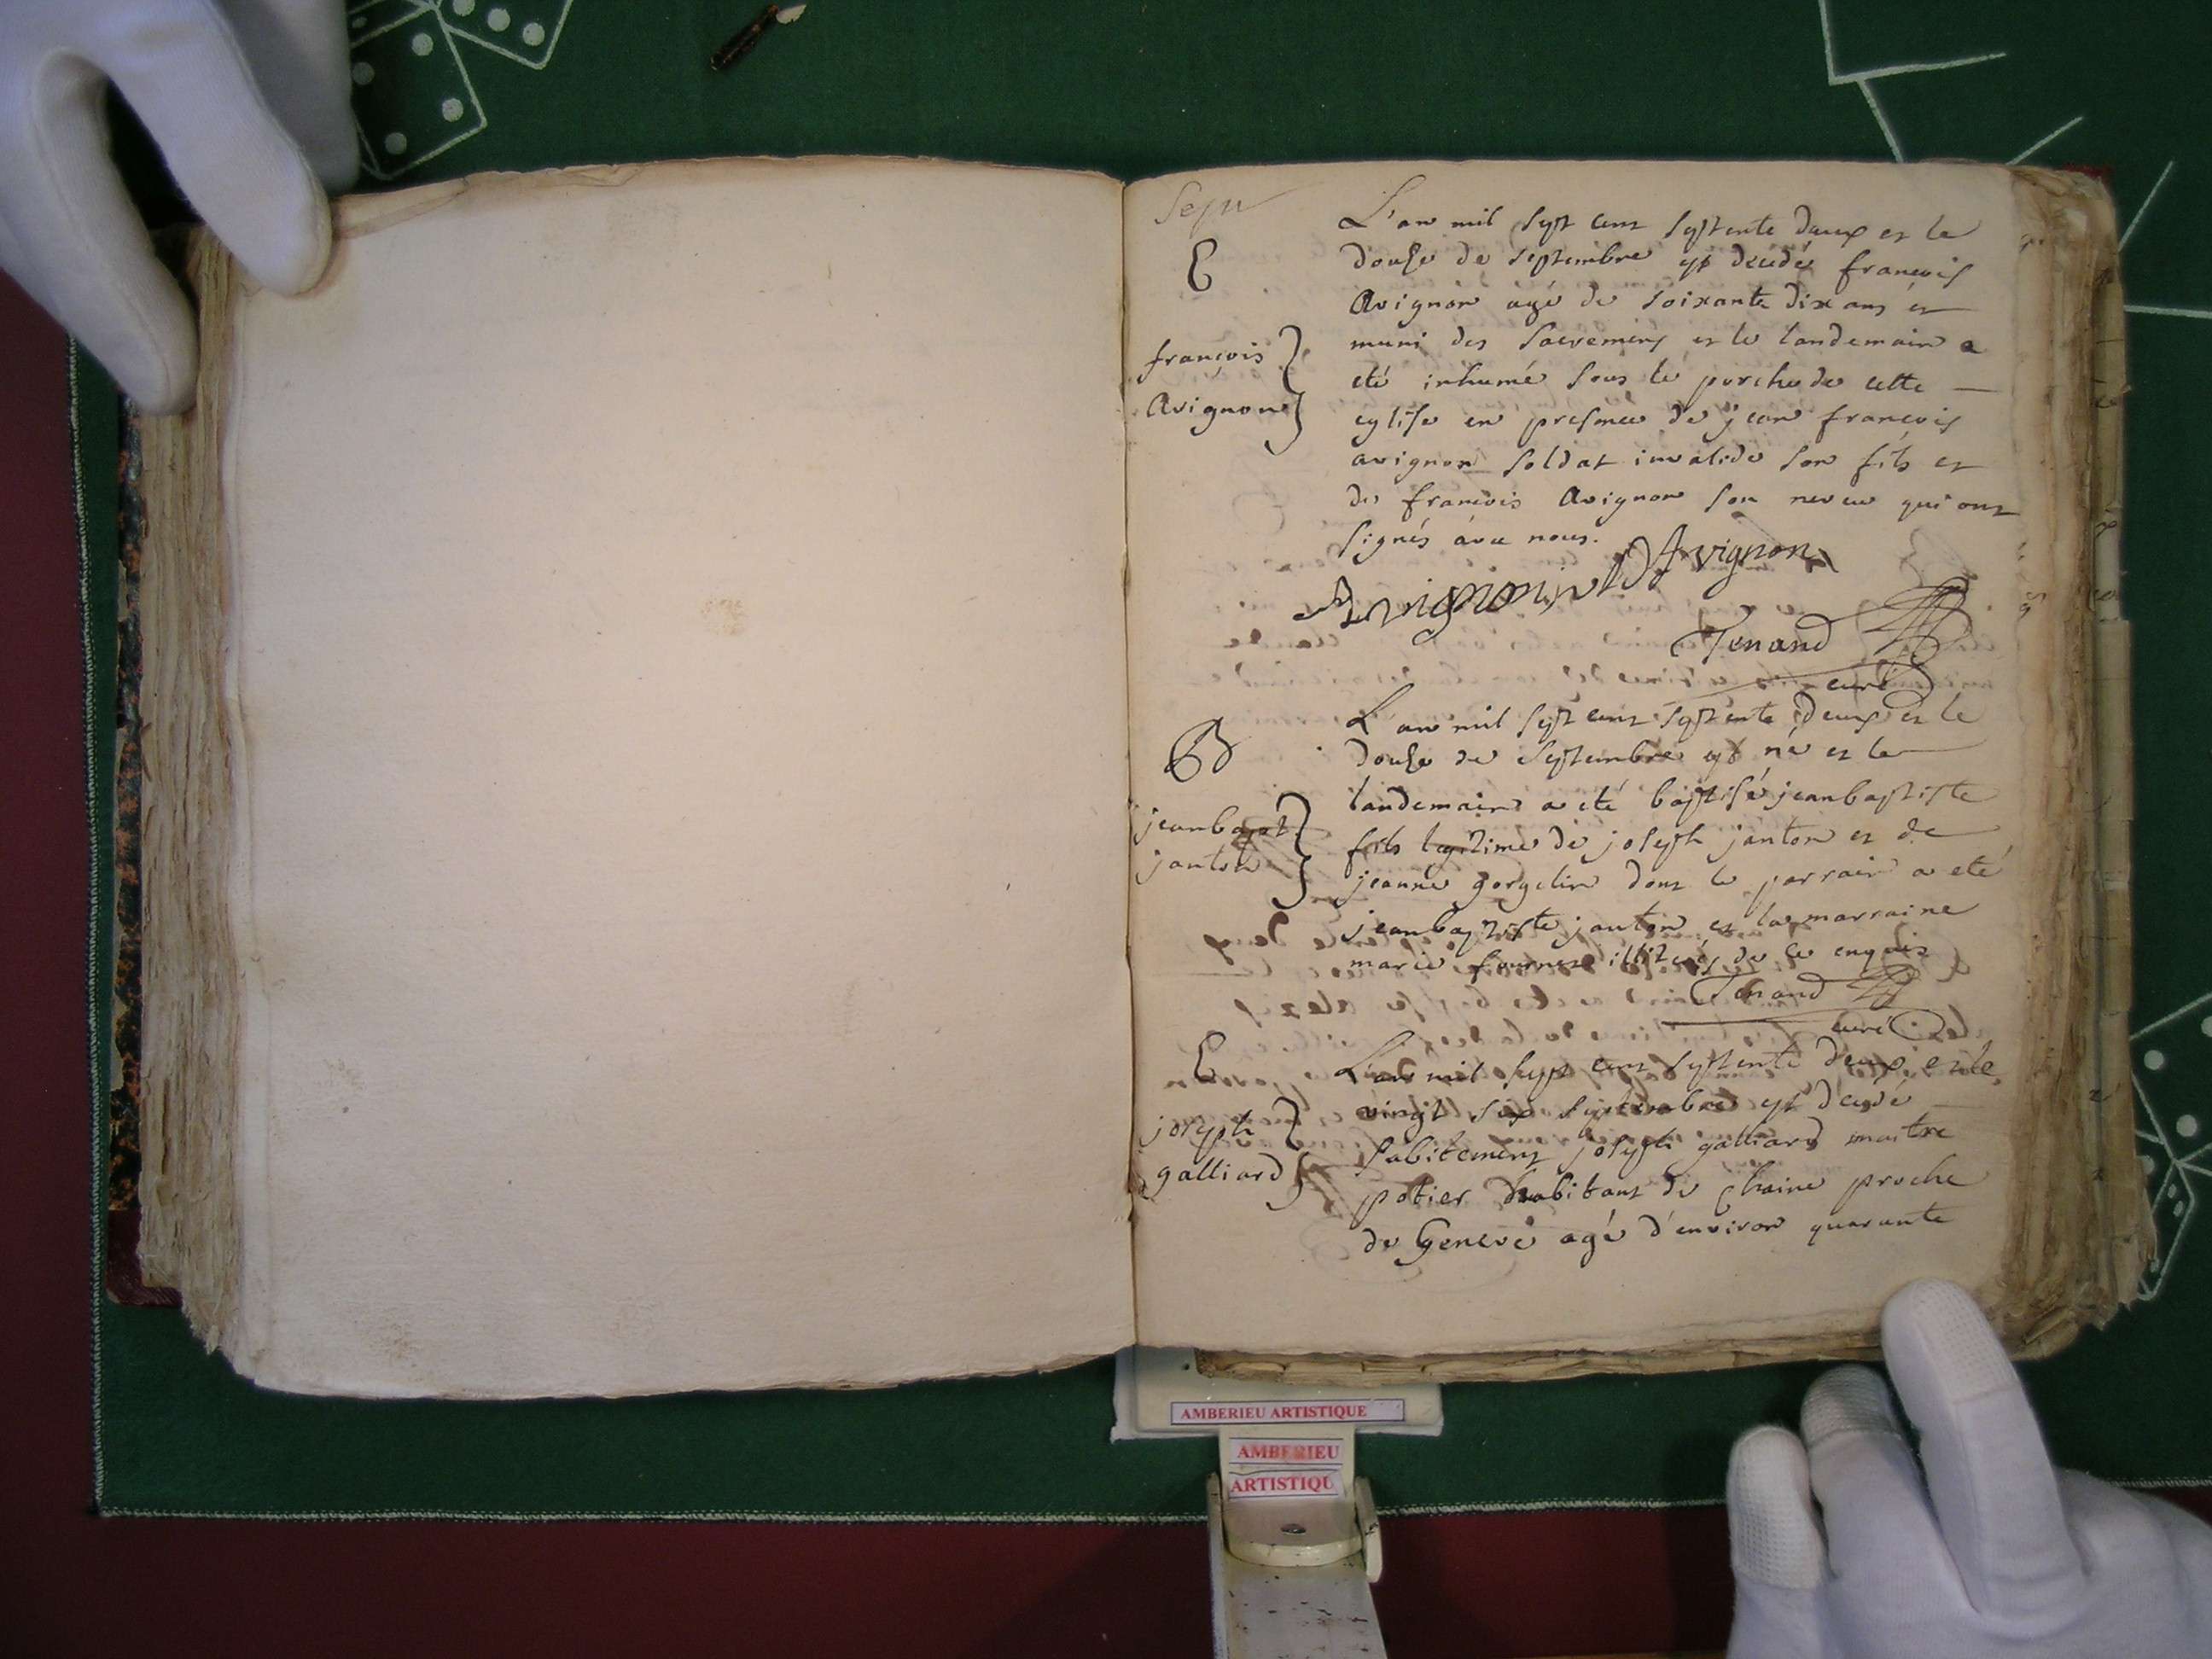 Sept
E
françois
Avignon
L'an mil sept cent septente deux et le
douse de septembre est decedé francois
Avignon agé de soixante dix ans et
muni des sacremens et le landemain a
eté inhumé sous le porche de cette
eglise en presence de jean francois
avignon soldat invalide son fils et
de francois Avignon son neveu qui ont
signés avec nous.
Avignon
Avignon
Tenand
curé
B
jeanbapt
janton
L'an mil sept cent septente deux et le
douse de septembre est né et le
landemain a eté baptisé jeanbaptiste
fils legitime de joseph janton et de
jeanne gorgelin dont le parrain a eté
jeanbaptiste janton et la marraine
marie illiterés de ce enquis
Tenand
curé
E
joseph
galliard
L'an mil sept cent septente deux et le
vingt six septembre est decedé
subitement joseph galliard maitre
potier habitant de proche
de Geneve agé d'environ quarante
AMBERIEU ARTISTIQUE
AMBERIEU
ARTISTIQU